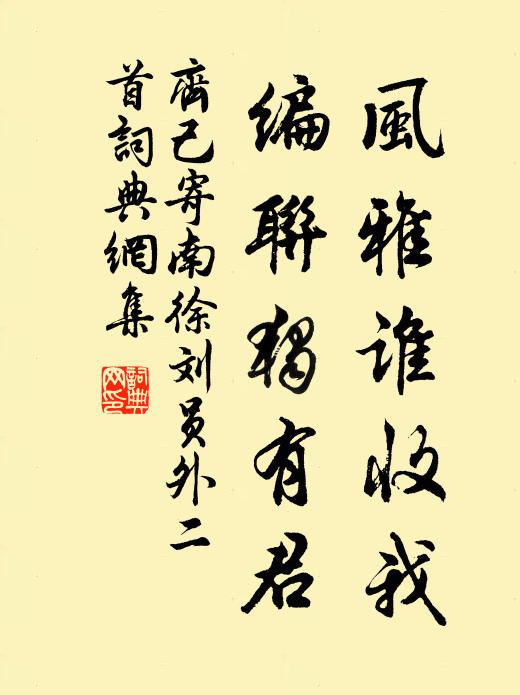 風雅誰收我
編聯獨有君
齊己寄南徐刘員外二
首詞典網集
詞典
网印